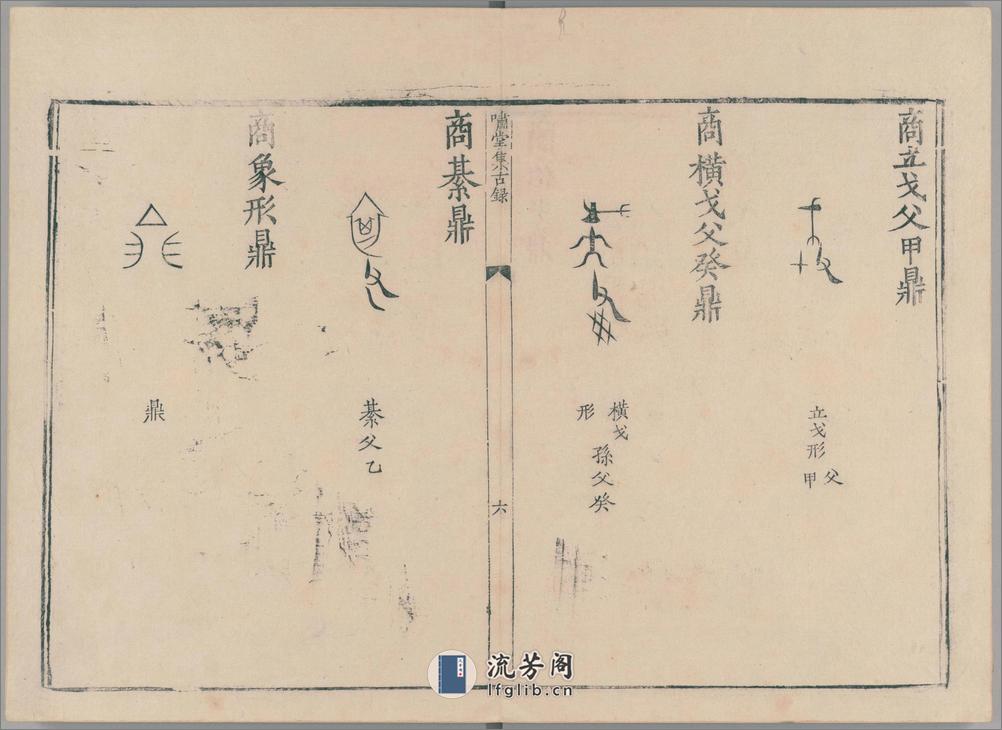 商立戈父甲鼎
立戈形
父
甲
商橫戈父癸鼎
橫戈
形
孫父癸
嘯堂集古錄
六
商綦鼎
綦父乙
商象形鼎
鼎
流芳阁
lfglib.cn